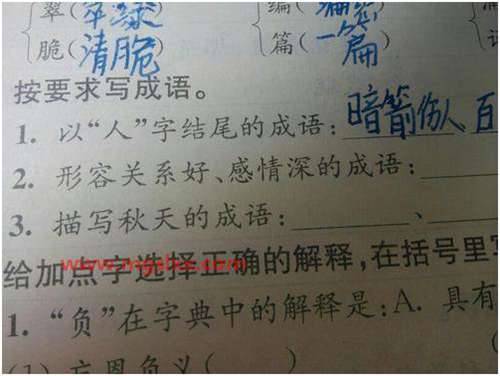 翠(翠绿) 编(
脆(清脆) 篇(一篇)
按要求写成语。
1. 以“人”字结尾的成语:暗箭伤人、百
2. 形容关系好、感情深的成语:
3. 描写秋天的成语:、
给加点字选择正确的解释,在括号里写
1. “负”在字典中的解释是:A. 具有
(1) 忘恩负义( )